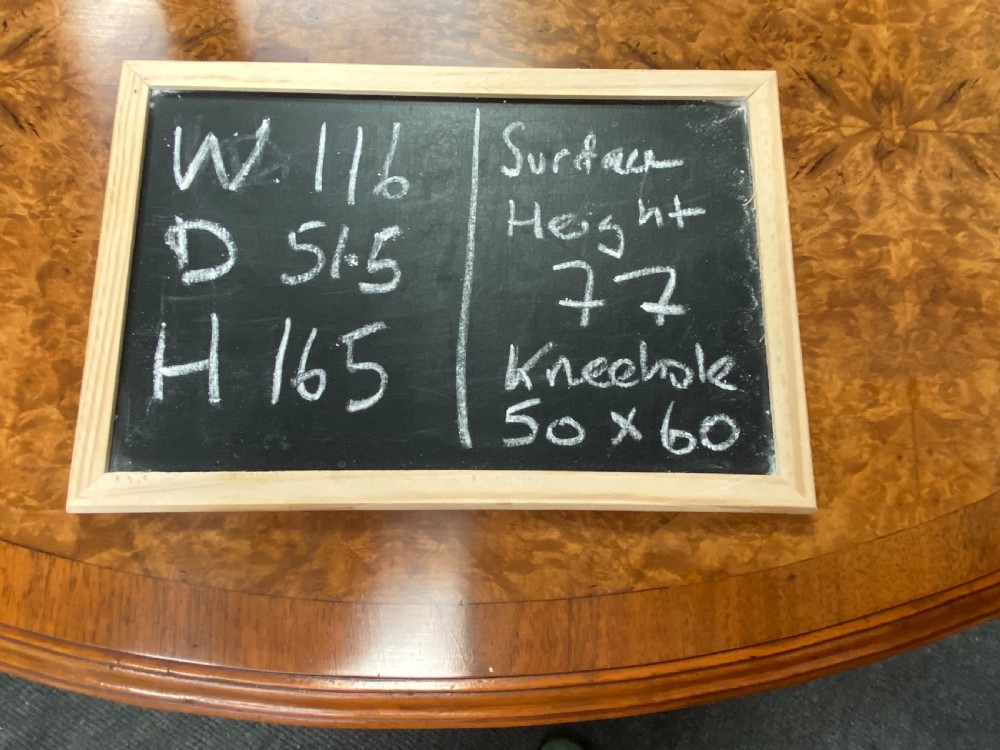 W. 116
D 51.5
H 165
Surface
Height
77
Kneehole
50 x 60